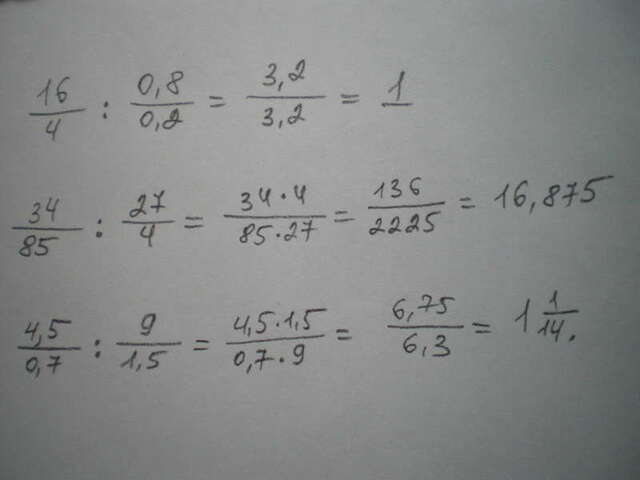 16/4 : 0,8/0,2 = 3,2/3,2 = 1
34/85 : 27/4 = 34·4/85·27 = 136/2225 = 16,875
4,5/0,7 : 9/1,5 = 4,5·1,5/0,7·9 = 6,75/6,3 = 1 1/14.